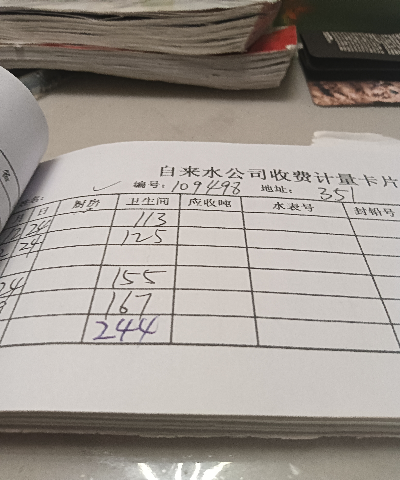 自来水公司收费计量卡片
编号: 109498 地址: 351
日 厨房 卫生间 应收吨 水表号 封铅号
24 113
24 125
24 155
167
244